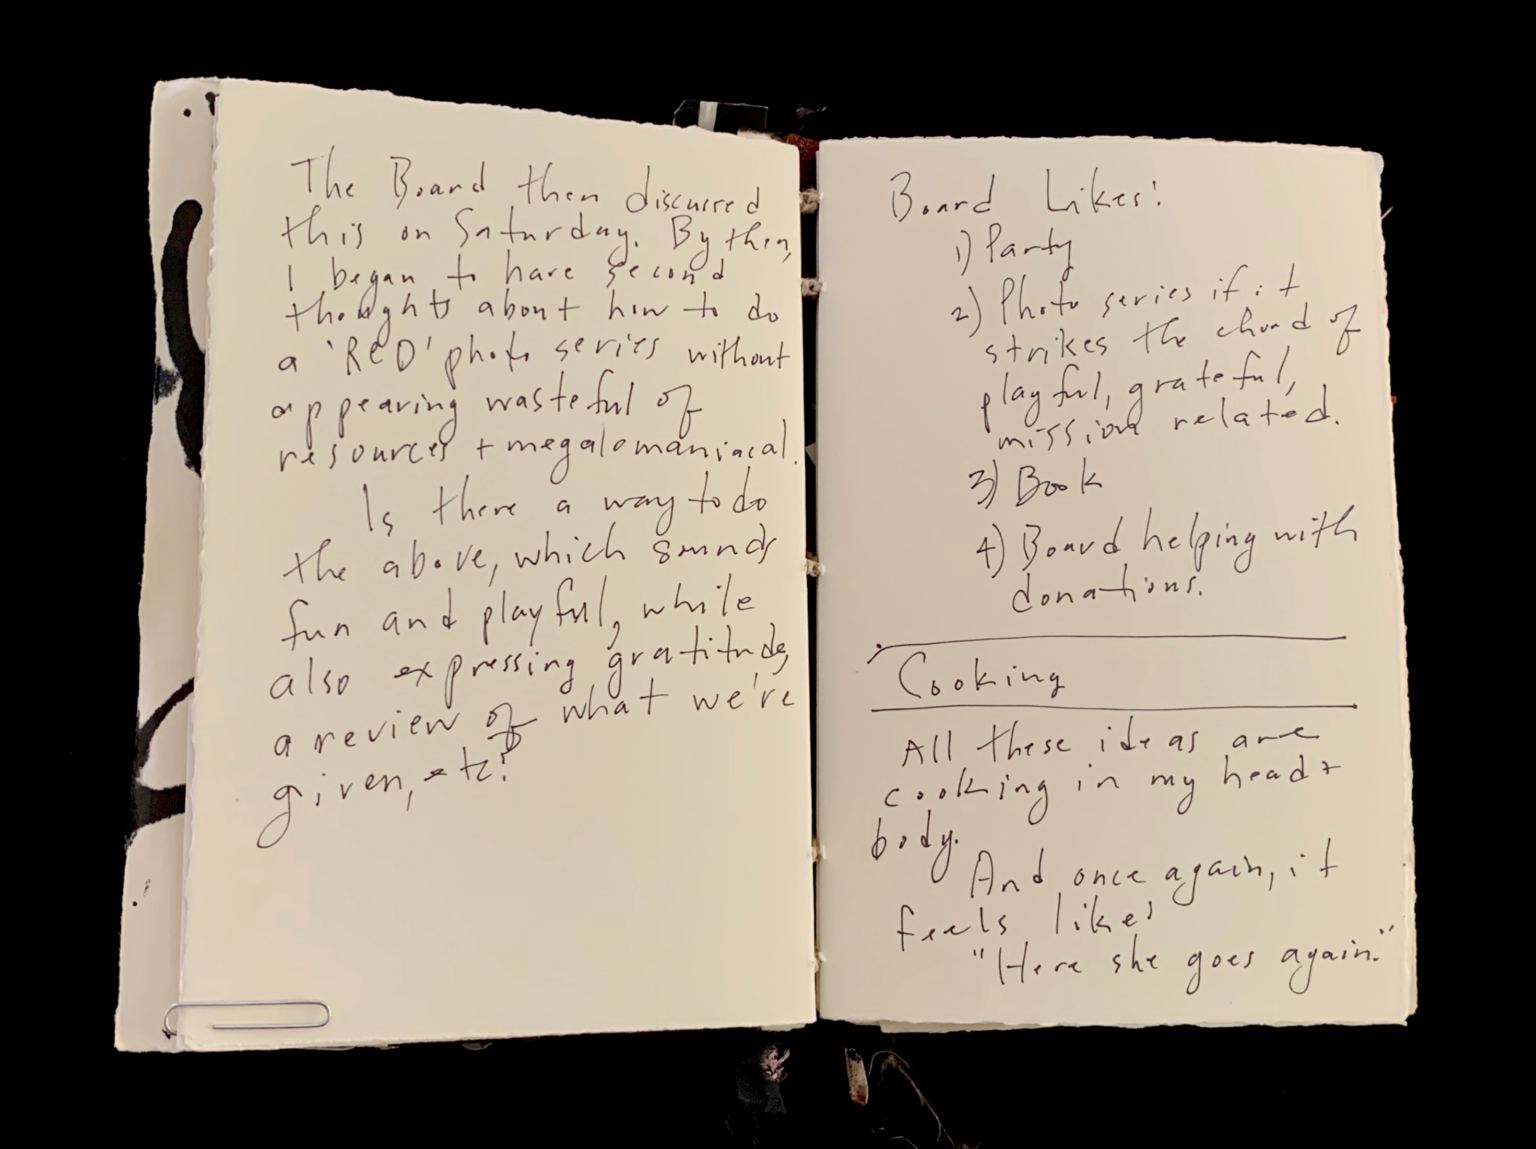 The Board then discussed
this on Saturday. By then,
I began to have second
thoughts about how to do
a 'RED' photo series without
appearing wasteful of
resources + megalomaniacal.
Is there a way to do
the above, which sounds
fun and playful, while
also expressing gratitude,
a review of what we're
given, etc?
Board Likes:
1) Party
2) Photo series if it
strikes the chord of
playful, grateful,
mission related.
3) Book
4) Board helping with
donations.
Cooking
All these ideas are
cooking in my head +
body.
And once again, it
feels like:
"Here she goes again."